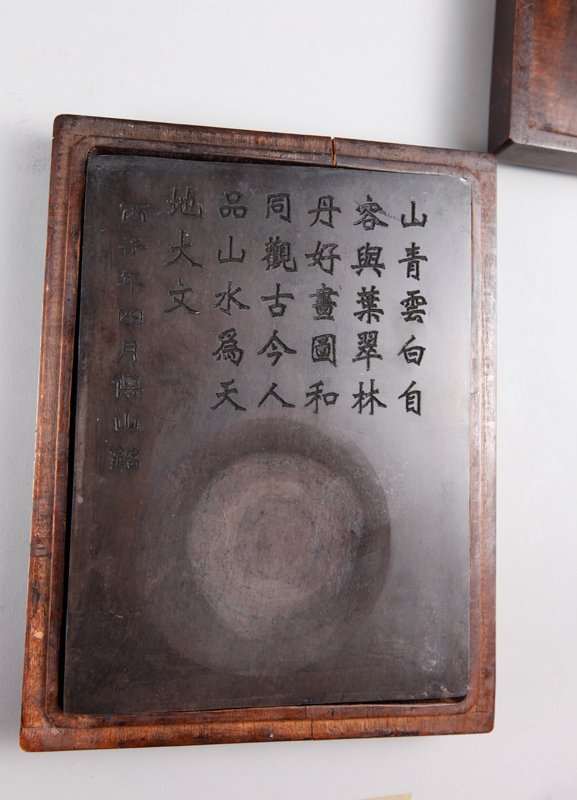 山青雲白自
容與葉翠林
丹好畫圖和
同觀古今人
品山水為天
地大文
丙子年四月傅山銘